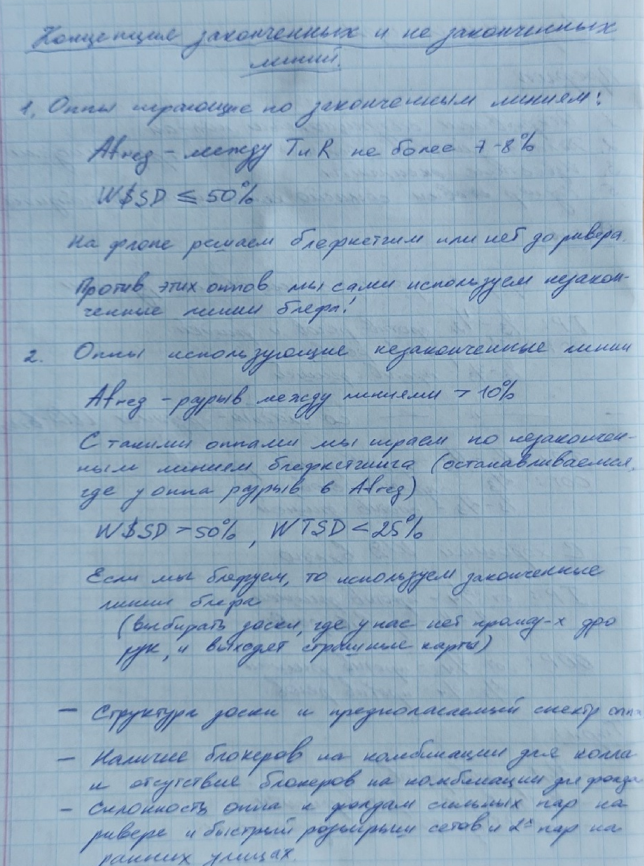 Концепция законченных и не законченных
линий.
1. Оппы играющие по законченным линиям:
Afreq – между T и R не более 7-8%
W$SD ≤ 50%
На флопе решаем блефкетчим или нет до ривера.
Против этих оппов мы сами используем незакон-
ченные линии блефа!
2. Оппы использующие незаконченные линии
Afreq – разрыв между линиями > 10%
С такими оппами мы играем по незакончен-
ным линиям блефкетчинга (останавливаемся,
где у оппа разрыв в Afreq)
W$SD > 50%, WTSD < 25%
Если мы блефуем, то используем законченные
линии блефа
(выбирать доски, где у нас нет промеж-х дро
рук, и выходят страшные карты)
– Структура доски и предполагаемый спектр оппа
– Наличие блокеров на комбинации для колла
и отсутствие блокеров на комбинации для фолда
– Склонность оппа к фолдам сильных пар на
ривере и быстрый розыгрыш сетов и 2х пар на
ранних улицах.